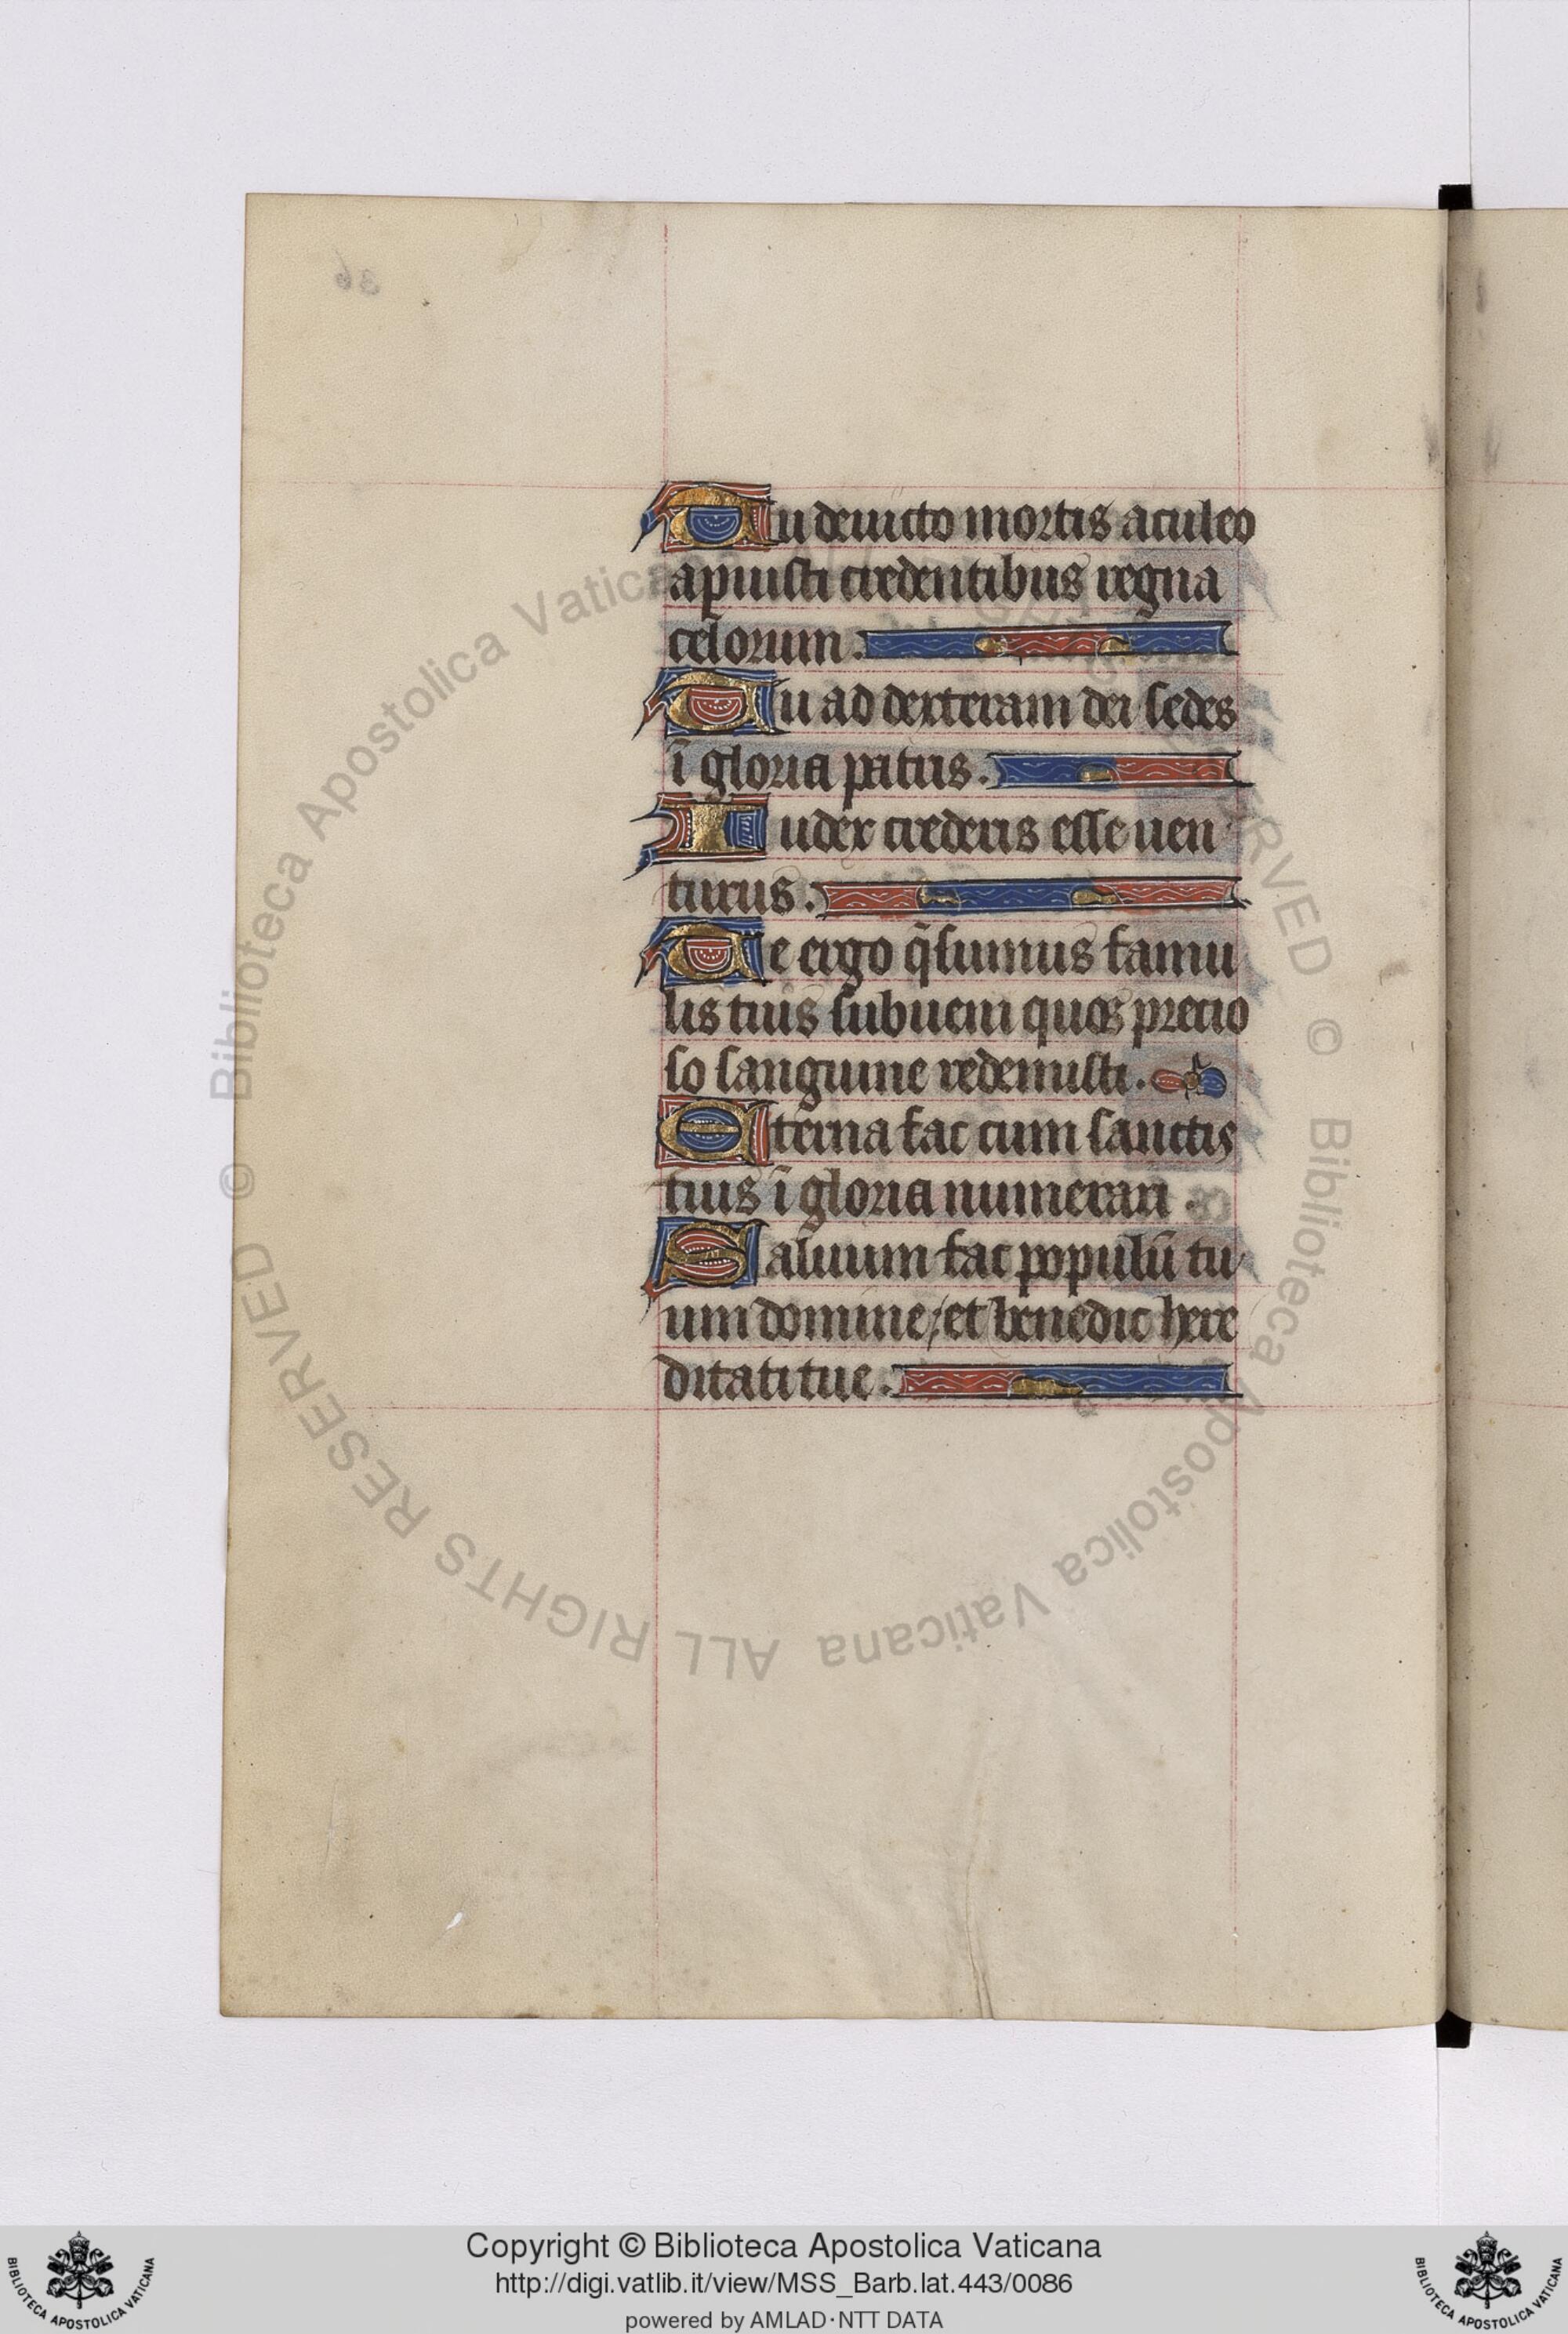 Tu deuicto mortis aculeo
apuisti credentibus regna
celorum.
Tu ad dexteram dei sedes
ī gloria patris.
Iudex crederis esse uen
turus.
Te ergo q̄sumus famu
lis tuis subueni quos precio
so sanguine redemisti.
Eterna fac cum sanctis
tuis ī gloria numerari.
Saluum fac populū tu
um domine; et benedic here
ditati tue.
© Biblioteca Apostolica Vaticana ALL RIGHTS RESERVED © Biblioteca Apostolica Vaticana ALL RIGHTS RESERVED
Copyright © Biblioteca Apostolica Vaticana
http://digi.vatlib.it/view/MSS_Barb.lat.443/0086
powered by AMLAD·NTT DATA
BIBLIOTECA APOSTOLICA VATICANA
BIBLIOTECA APOSTOLICA VATICANA